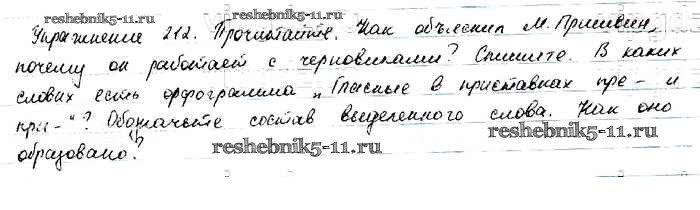 reshebnik5-11.ru reshebnik5-11.ru
Упражнение 212. Прочитайте. Как объяснил М. Пришвин,
почему он работает с черновиками? Спишите. В каких
словах есть орфограмма „Гласные в приставках пре- и
при-"? Обозначьте состав выделенного слова. Как оно
reshebnik5-11.ru
образовано?
reshebnik5-11.ru